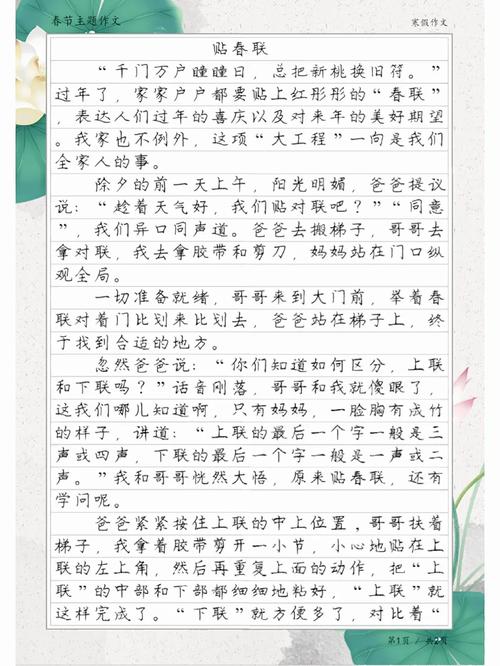 春节主题作文
寒假作文
贴春联
“千门万户曈曈日，总把新桃换旧符。”
过年了，家家户户都要贴上红彤彤的“春联”
，表达人们过年的喜庆以及对来年的美好期望
。我家也不例外，这项“大工程”一向是我们
全家人的事。
除夕的前一天上午，阳光明媚，爸爸提议
说：“趁着天气好，我们贴对联吧？”“同意
”，我们异口同声道。爸爸去搬梯子，哥哥去
拿对联，我去拿胶带和剪刀，妈妈站在门口纵
观全局。
一切准备就绪，哥哥来到大门前，举着春
联对着门比划来比划去，爸爸站在梯子上，终
于找到合适的地方。
忽然爸爸说：“你们知道如何区分，上联
和下联吗？”话音刚落，哥哥和我就傻眼了，
这我们哪儿知道啊，只有妈妈，一脸胸有成竹
的样子，讲道：“上联的最后一个字一般是三
声或四声，下联的最后一个字一般是一声或二
声。”我和哥哥恍然大悟，原来贴春联，还有
学问呢。
爸爸紧紧按住上联的中上位置，哥哥扶着
梯子，我拿着胶带剪开一小节，小心地贴在上
联的左上角，然后再重复上面的动作，把“上
联”的中部和下部都细细地粘好，“上联”就
这样完成了。“下联”就方便多了，对比着“
第1页 / 共2页